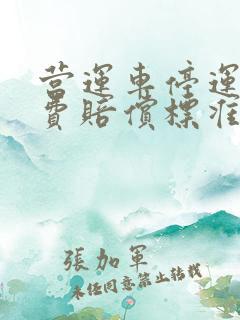 營運車停運
費賠償標准
張加軍
未经同意禁止转载